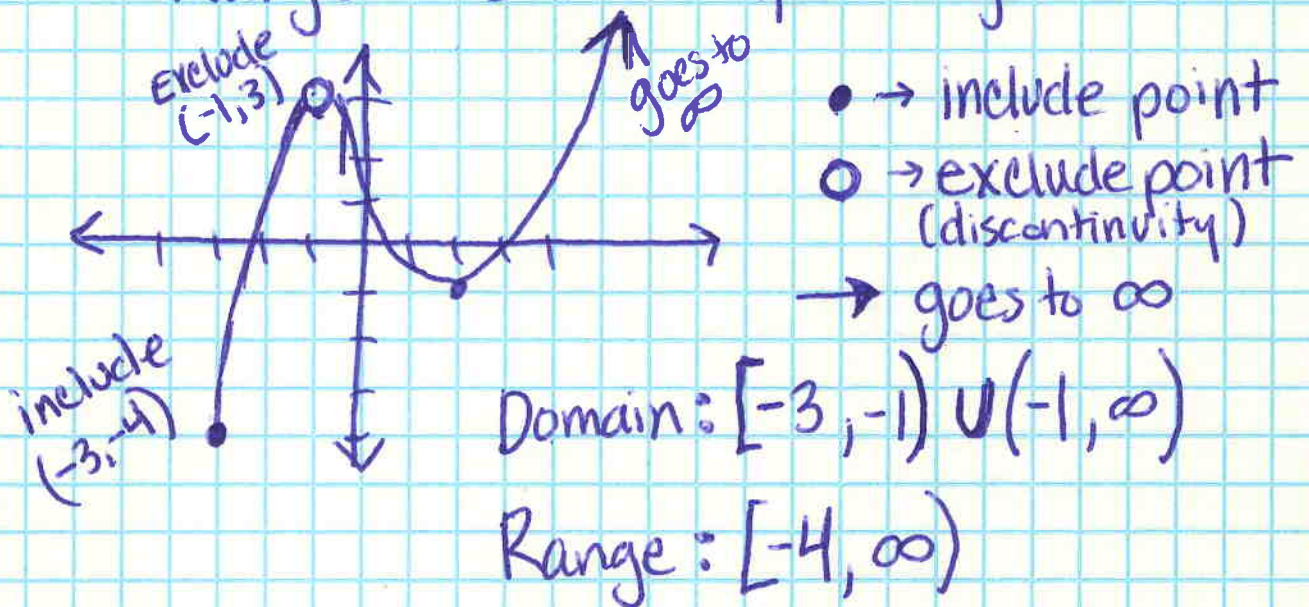 Exclude
(-1,3)
goes to
∞
• → include point
○ → exclude point
(discontinuity)
→ goes to ∞
include
(-3,-4)
Domain: [-3,-1) U (-1,∞)
Range: [-4,∞)